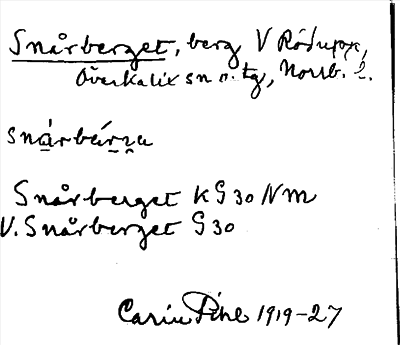 Snårberget, berg V Rödupp,
Överkalix sn o. tg, Norrb. l.
snárbár
Snårberget K G 30 Nm
V. Snårberget G 30
Carin Pihl 1919-27